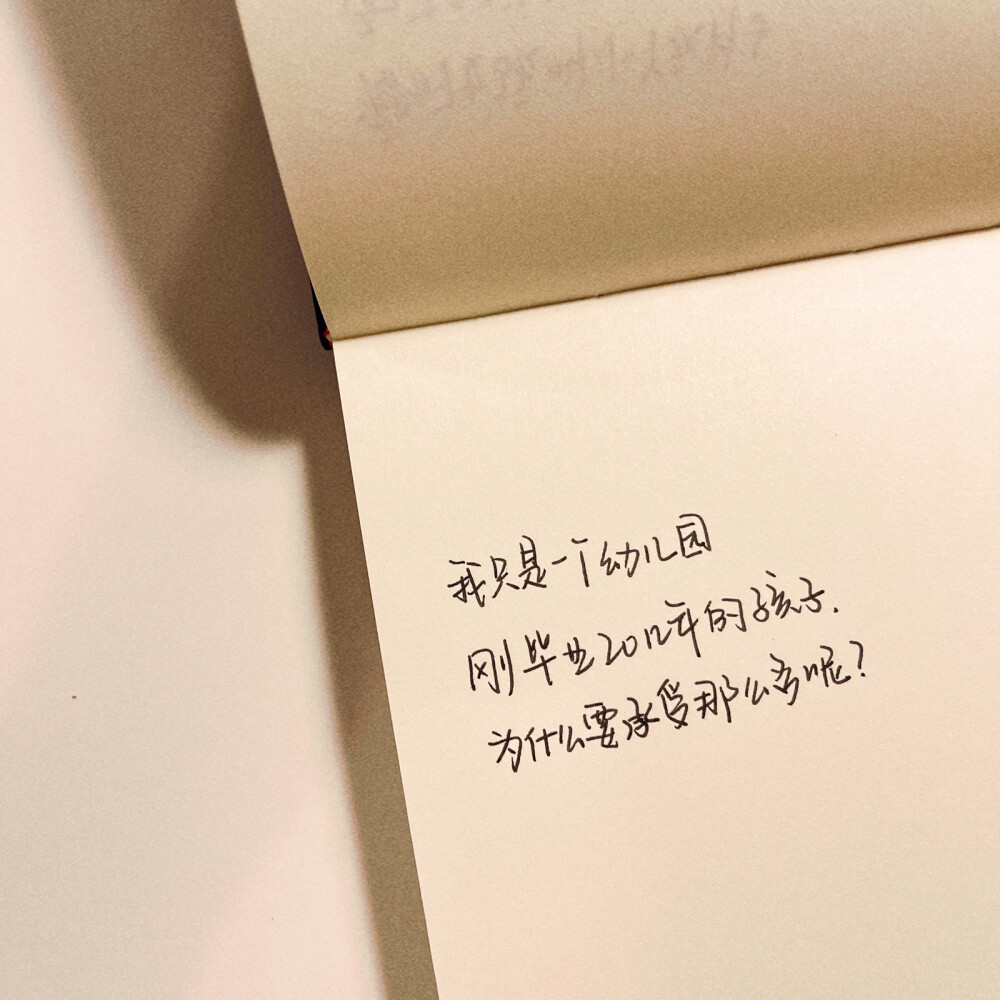 我只是一个幼儿园
刚毕业20几年的孩子.
为什么要承受那么多呢?